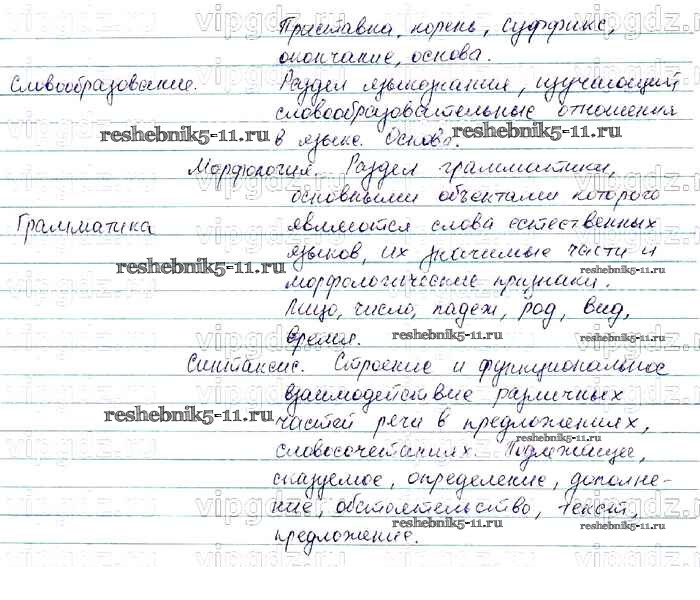 Приставка, корень, суффикс,
окончание, основа.
Словообразование. Раздел языкознания, изучающий
словообразовательные отношения
reshebnik5-11.ru в языке. Основа.
Морфология. Раздел грамматики,
основными объектами которого
Грамматика являются слова естественных
языков, их значимые части и
reshebnik5-11.ru морфологические признаки. reshebnik5-11.ru
Лицо, число, падеж, род, вид,
время. reshebnik5-11.ru
Синтаксис. Строение и функциональное
взаимодействие различных
reshebnik5-11.ru частей речи в предложениях,
словосочетаниях. Подлежащее, reshebnik5-11.ru
сказуемое, определение, дополне-
ние, обстоятельство, текст,
предложение. reshebnik5-11.ru reshebnik5-11.ru